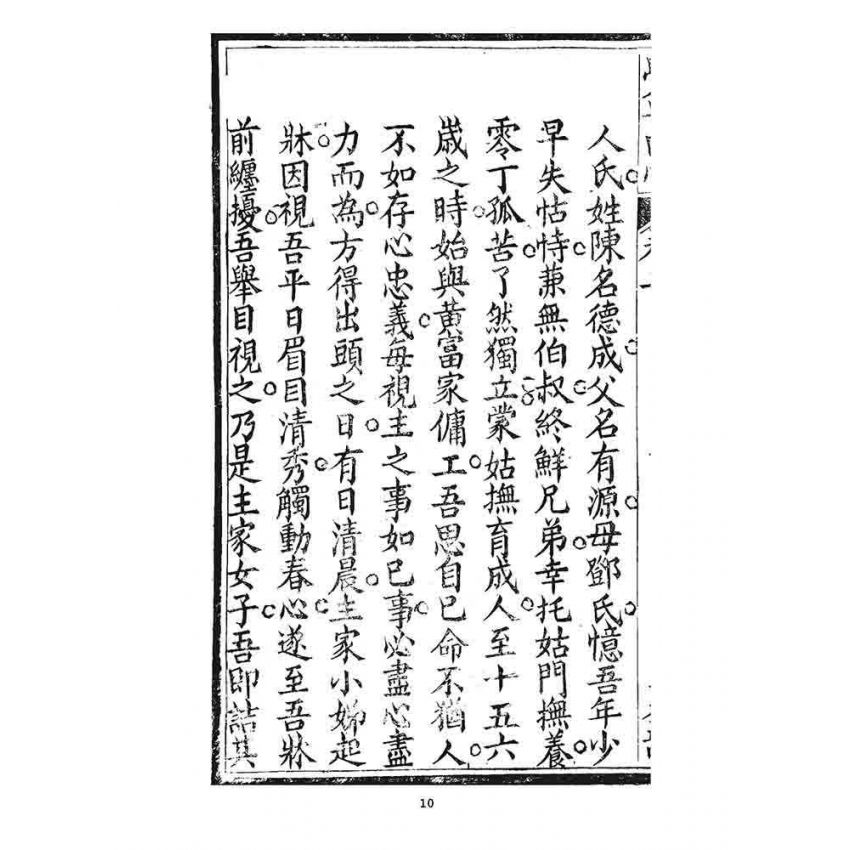 人氏姓陳名德成父名有源母鄧氏憶吾年少
早失怙恃兼無伯叔終鮮兄弟幸托姑門撫養
零丁孤苦了然獨立蒙姑撫育成人至十五六
歲之時始與黃富家傭工吾思自己命不猶人
不如存心忠義每視主之事如己事必盡心盡
力而為方得出頭之日有日清晨主家小娣起
牀因視吾平日眉目清秀觸動春心遂至吾牀
前纏擾吾舉目視之乃是主家女子吾即詰其
10